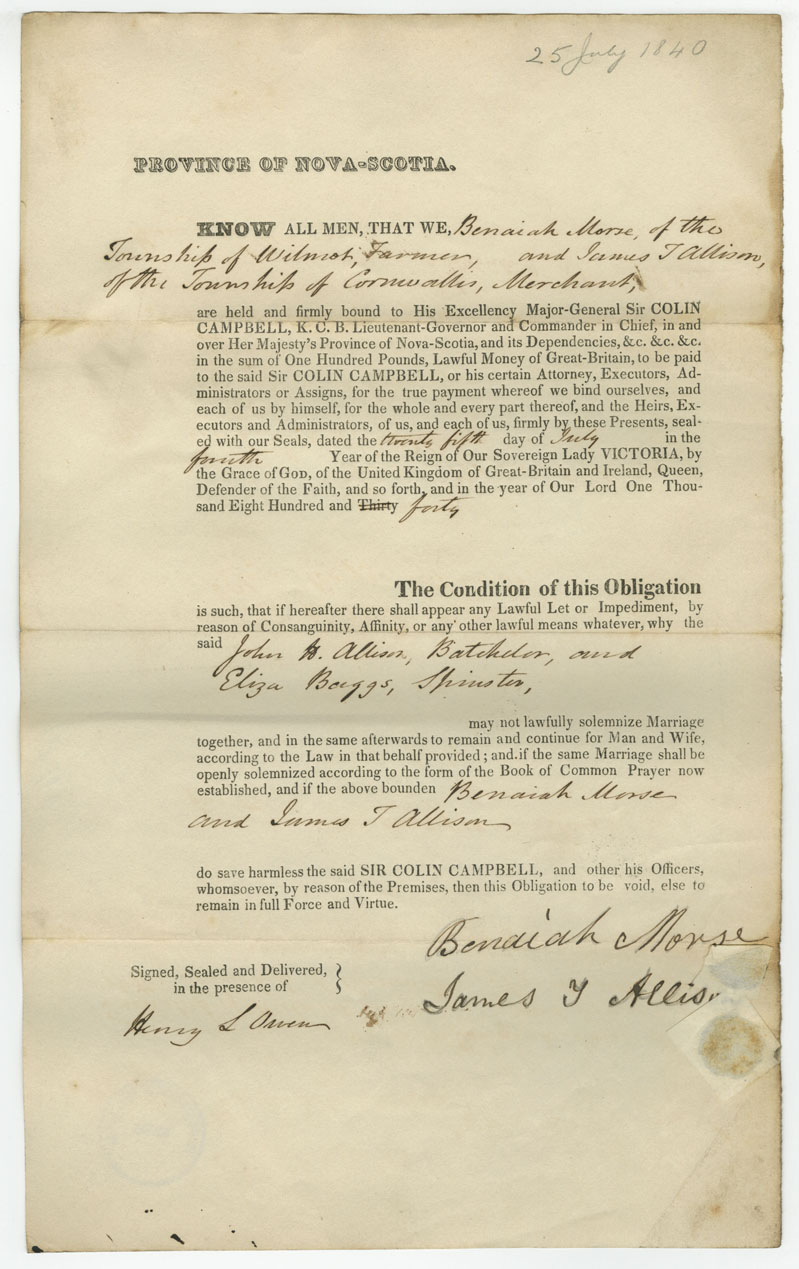 25 July 1840
PROVINCE OF NOVA-SCOTIA.
KNOW ALL MEN, THAT WE, Benaiah Morse, of the
Township of Wilmot, Farmer, and James T Allison,
of the Township of Cornwallis, Merchant,
are held and firmly bound to His Excellency Major-General Sir COLIN
CAMPBELL, K. C. B. Lieutenant-Governor and Commander in Chief, in and
over Her Majesty's Province of Nova-Scotia, and its Dependencies, &c. &c. &c.
in the sum of One Hundred Pounds, Lawful Money of Great-Britain, to be paid
to the said Sir COLIN CAMPBELL, or his certain Attorney, Executors, Ad-
ministrators or Assigns, for the true payment whereof we bind ourselves, and
each of us by himself, for the whole and every part thereof, and the Heirs, Ex-
ecutors and Administrators, of us, and each of us, firmly by these Presents, seal-
ed with our Seals, dated the twenty fifth day of July in the
fourth Year of the Reign of Our Sovereign Lady VICTORIA, by
the Grace of GOD, of the United Kingdom of Great-Britain and Ireland, Queen,
Defender of the Faith, and so forth, and in the year of Our Lord One Thou-
sand Eight Hundred and Thirty forty
The Condition of this Obligation
is such, that if hereafter there shall appear any Lawful Let or Impediment, by
reason of Consanguinity, Affinity, or any other lawful means whatever, why the
said John H. Allison, Batchelor, and
Eliza Baggs, Spinster,
may not lawfully solemnize Marriage
together, and in the same afterwards to remain and continue for Man and Wife,
according to the Law in that behalf provided; and if the same Marriage shall be
openly solemnized according to the form of the Book of Common Prayer now
established, and if the above bounden Benaiah Morse
and James T Allison
do save harmless the said SIR COLIN CAMPBELL, and other his Officers,
whomsoever, by reason of the Premises, then this Obligation to be void, else to
remain in full Force and Virtue.
Benaiah Morse
Signed, Sealed and Delivered,
in the presence of
James T Alliso
Henry L Owen